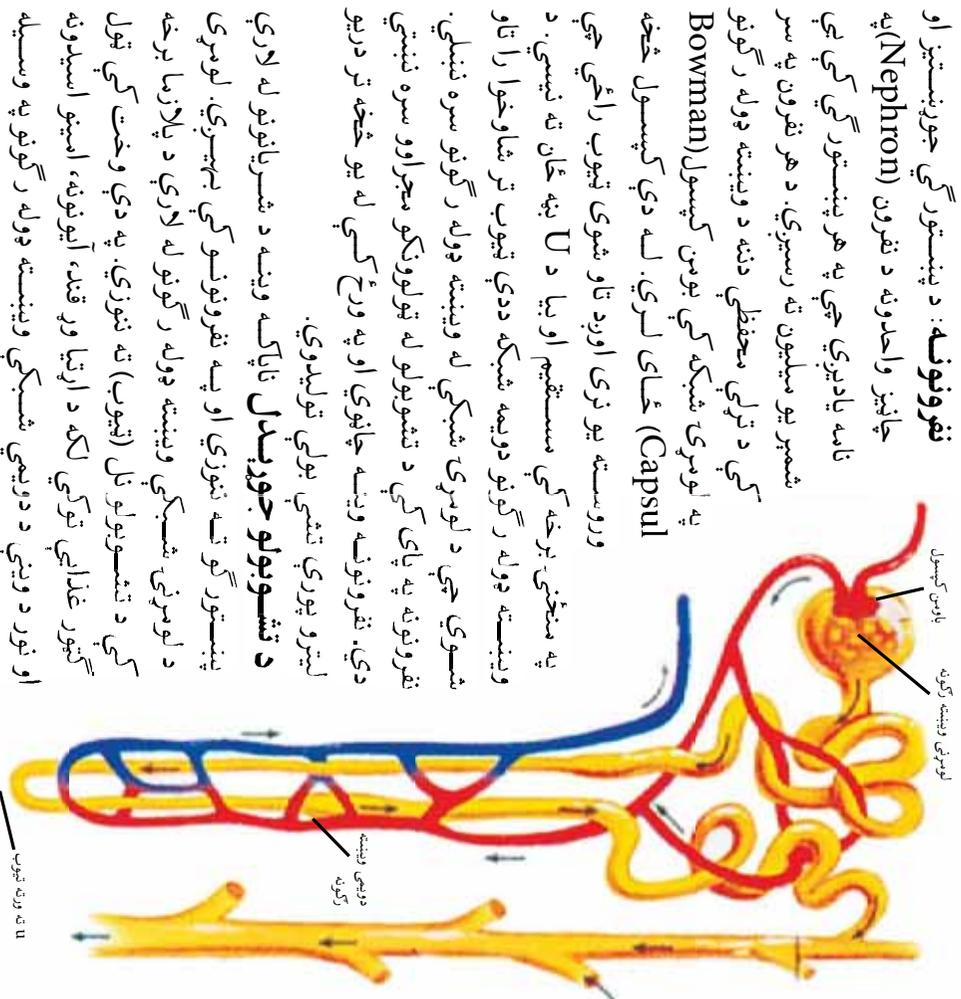 نفرونونــه: د پښتورګي جوړښتیز او
چاڼیز واحدونه د نفرون (Nephron) په
نامه یادیږي چې په هر پښتورګي کې یې
شمېر یو میلیون ته رسیږي. د هر نفرون په سر
کې د ترلې محفظې دننه د ویښته ډوله رګونو
په لومړۍ شبکه کې بومن کپسول (Bowman
Capsul) ځای لري. له دې کپسول څخه
وروسته یو نری اوږد تاو شوی ټیوب راځي چې
په منځنۍ برخه کې مستقیم او بیا د U بڼه ځان ته نیسي. د
ویښته ډوله رګونو دویمه شبکه ددې ټیوب تر شاوخوا را تاو
شوې چې د لومړۍ شبکې له ویښته ډوله رګونو سره نښلي.
نفرونونه په پای کې د تشوبولو له ټولوونکو مجراوو سره نښتي
دي. نفرونونه وینه چاڼوي او په ورځ کې له یو څخه تر دریو
لیترو پورې تشې بولې تولیدوي.
د تشوبولو جوړېدل ناپاکه وینه د شریانونو له لارې
پښتورګو ته ننوزي او په نفرونونو کې بهیږي. لومړی
د لومړنۍ شبکې ویښته ډوله رګونو له لارې د پلازما برخه
کې د تشوبولو نل (ټیوب) ته ننوزي. په دې وخت کې ټول
ګټور غذایي توکي لکه د اړتیا وړ قند، آیونونه، امینو اسیدونه
او نور د وینې د دویمې شبکې ویښته ډوله رګونو په وسیله
باومن کپسول
لومړنی ویښته رګونه
دویمی ویښته
رګونه
u ته ورته ټیوب